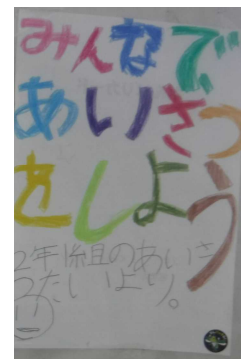 みんなで
あいさつ
をしよう
2年1組のあいさ
つたいより。